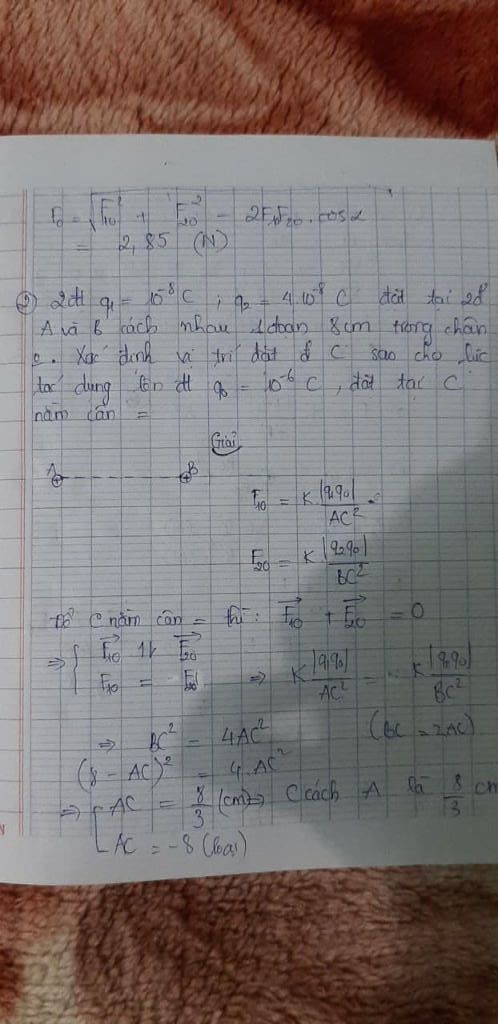 F₀ = √F₁₀² + F₂₀² - 2F₁₀F₂₀.cosα
= 2,85 (N)
② 2đt q₁ = 10⁻⁸ C ; q₂ = 4.10⁻⁸ C đặt tại 2đ
A và B cách nhau 1 đoạn 8cm trong chân
o. Xác định vị trí đặt đ C sao cho lực
tác dụng lên đt q₀ = 10⁻⁶ C, đặt tại C
nằm cân =
Giải
A B
F₁₀ = K|q₁q₀|/AC²
F₂₀ = K|q₂q₀|/BC²
Để C nằm cân = thì: F₁₀→ + F₂₀→ = 0
⇒ { F₁₀→ ↑↓ F₂₀→
F₁₀ = F₂₀ ⇒ K|q₁q₀|/AC² = K|q₂q₀|/BC²
⇒ BC² = 4AC² (BC = 2AC)
(8 - AC)² = 4.AC²
⇒ [ AC = 8/3 (cm) ⇒ C cách A là 8/3 cm
AC = -8 (loại)